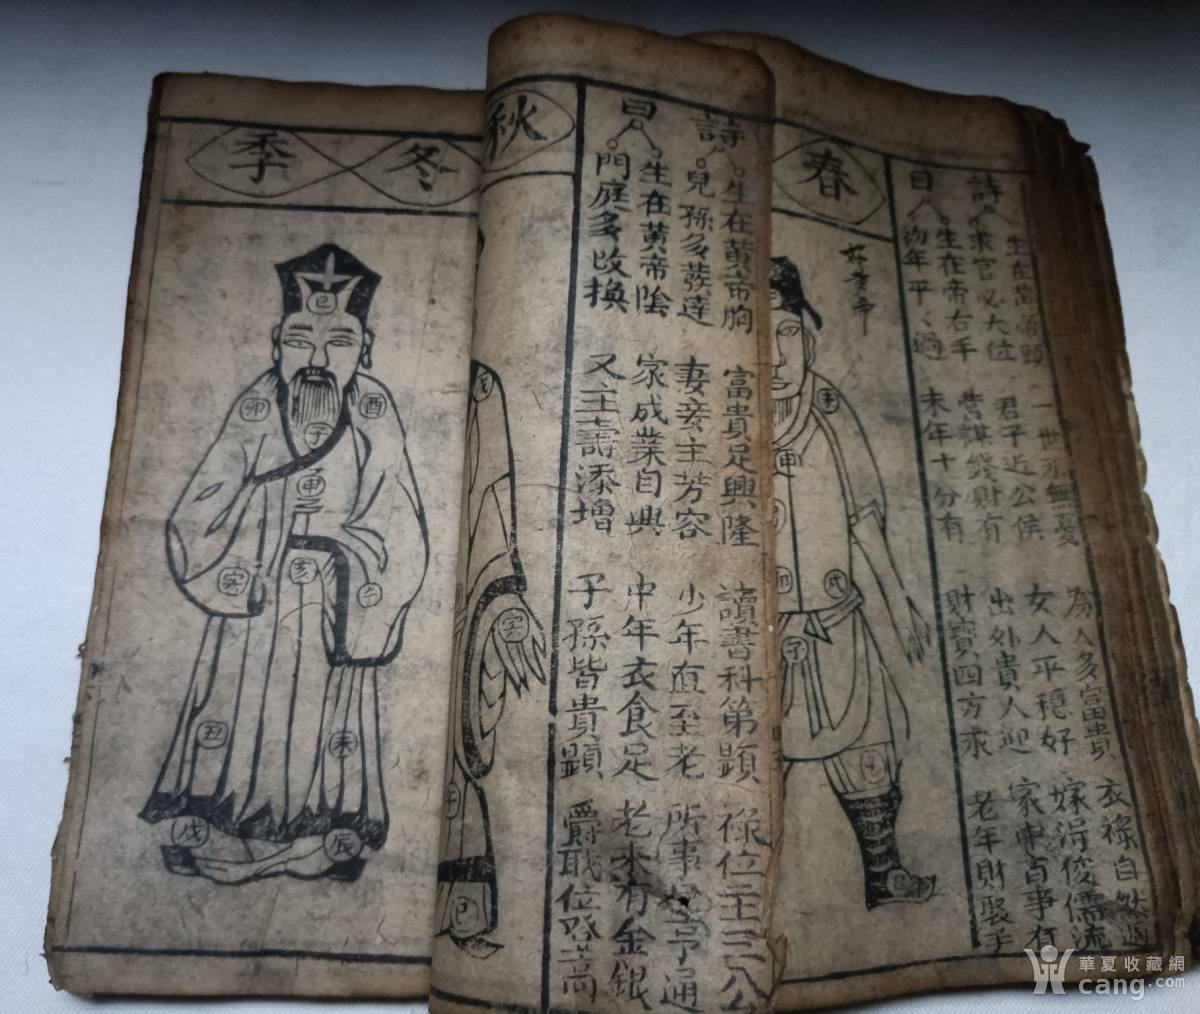 春
詩曰
生在黃帝頭 一世永無憂 為人多富貴 衣祿自然週
求官必大位 君子近公侯 女人平穩好 嫁得俊儒流
生在帝右手 營謀錢財有 出外貴人迎 家中百事有
初年平々過 末年十分有 財寶四方求 老年財聚手
黃帝
申
戌
子
詩曰
生在黃帝胸 富貴足興隆 讀書科第顯 祿位主三公
兒孫多發達 妻妾主芳容 少年直至老 所事亨通
生在黃帝陰 家成業自興 中年衣食足 老來有金銀
門庭多改換 又主壽添增 子孫皆貴顯 爵職位登高
秋
寅
午
巳
冬季
巳
酉
卯
子
申
亥
寅
午
丑
未
戌
辰
華夏收藏網
cang.com